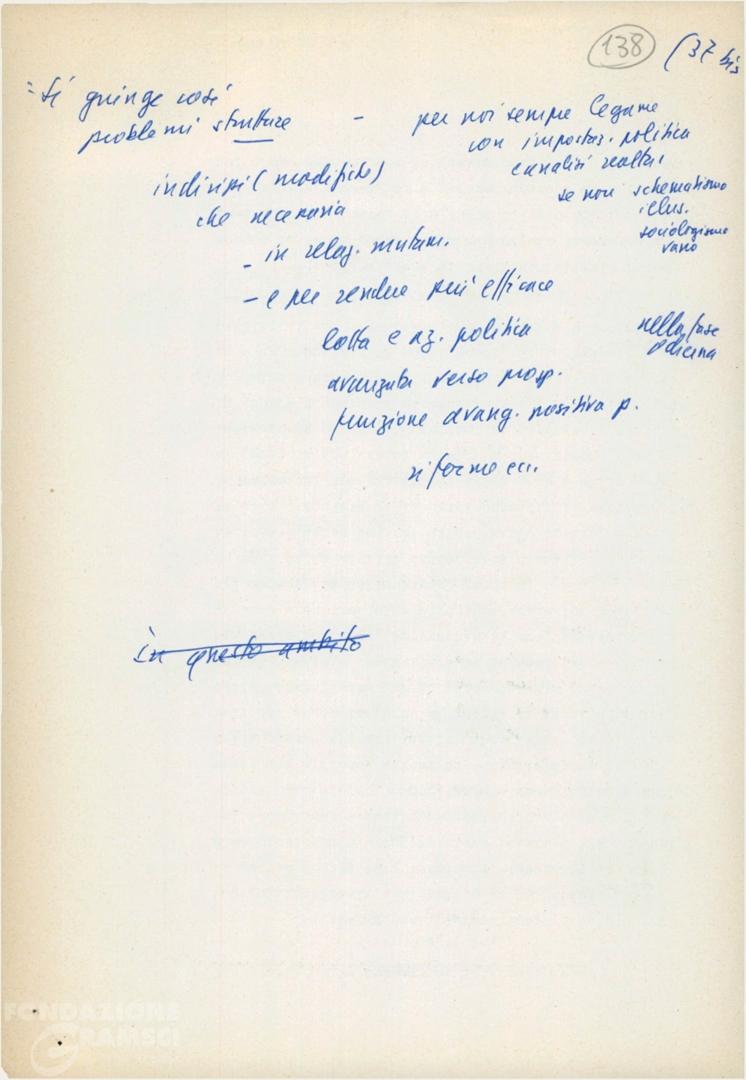 138 (37 bis
= si giunge così
problemi strutture - per noi sempre legame
con impostaz. politica
e analisi realtà
se non schematismo
illus.
sociologismo
vano
indirizzi (modifiche)
che necessaria
- in relaz. mutam.
- e per rendere più efficace
lotta e az. politica
nella fase
odierna
avanzata verso prosp.
funzione avang. positiva p.
riforme ecc.
in questo ambito
FONDAZIONE
GRAMSCI